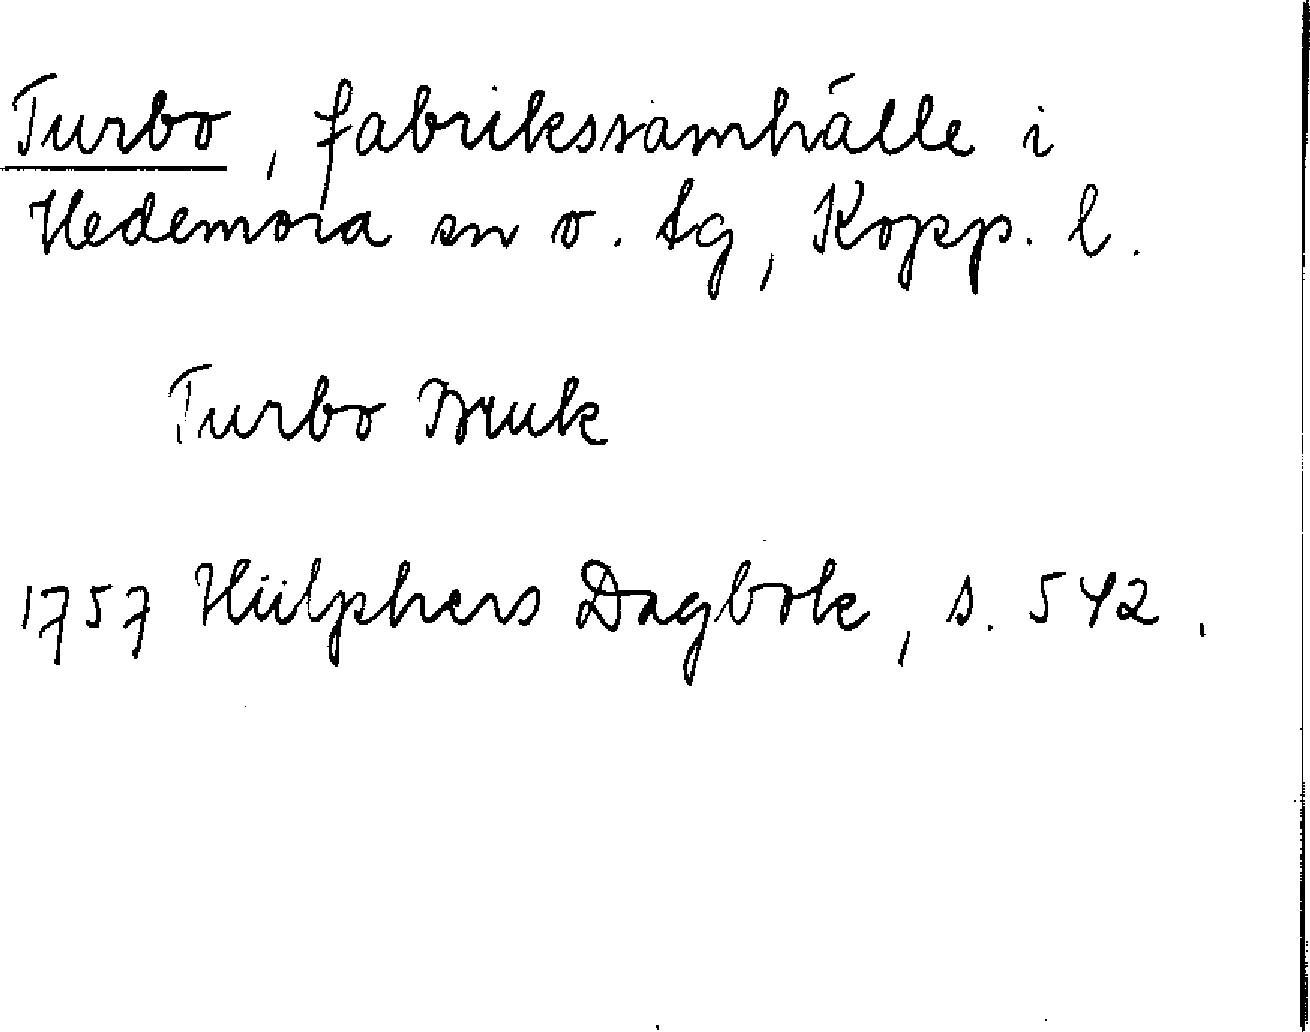 Turbo, fabrikssamhälle i
Hedemora sn o. tg, Kopp. l.
Turbo Bruk
1757 Hülphers Dagbok, s. 542.